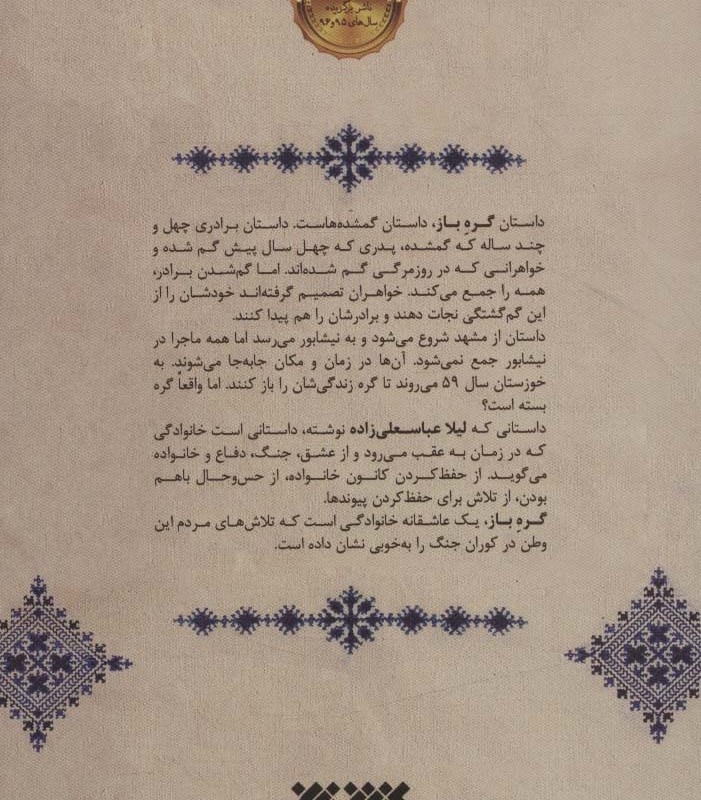 ناشر برگزیده
سال‌های ۹۵ و ۹۶
داستان گـــرهِ بــاز، داستان گمشده‌هاست. داستان بـرادری چهل و
چند سـاله کـه گمشده، پـدری کـه چهـل سـال پیـش گـم شـده و
خواهرانـی کـه در روزمرگـی گـم شـده‌اند. امـا گم‌شـدن بـرادر،
همـه را جمـع می‌کنـد. خواهـران تصمیـم گرفته‌انـد خودشـان را از
این گم‌گشتگی نجات دهند و برادرشان را هم پیدا کنند.
داستان از مشهد شروع می‌شود و به نیشابور می‌رسد اما همه ماجرا در
نیشابور جمع نمی‌شود. آن‌ها در زمان و مکان جابه‌جا می‌شوند. به
خوزستان سال ۵۹ می‌روند تا گره زندگی‌شان را باز کنند. اما واقعاً گره
بسته است؟
داستانی که لیلا عباسـعلی‌زاده نوشته، داستانی است خانوادگی
که در زمـان به عقـب می‌رود و از عشـق، جنگ، دفاع و خانواده
می‌گویـد. از حفظ‌کـردن کانـون خانـواده، از حس‌وحـال باهـم
بودن، از تلاش برای حفظ‌کردن پیوندها.
گــرهِ بــاز، یـک عاشـقانه خانوادگـی است کـه تلاش‌هـای مـردم این
وطن در کوران جنگ را به‌خوبی نشان داده است.